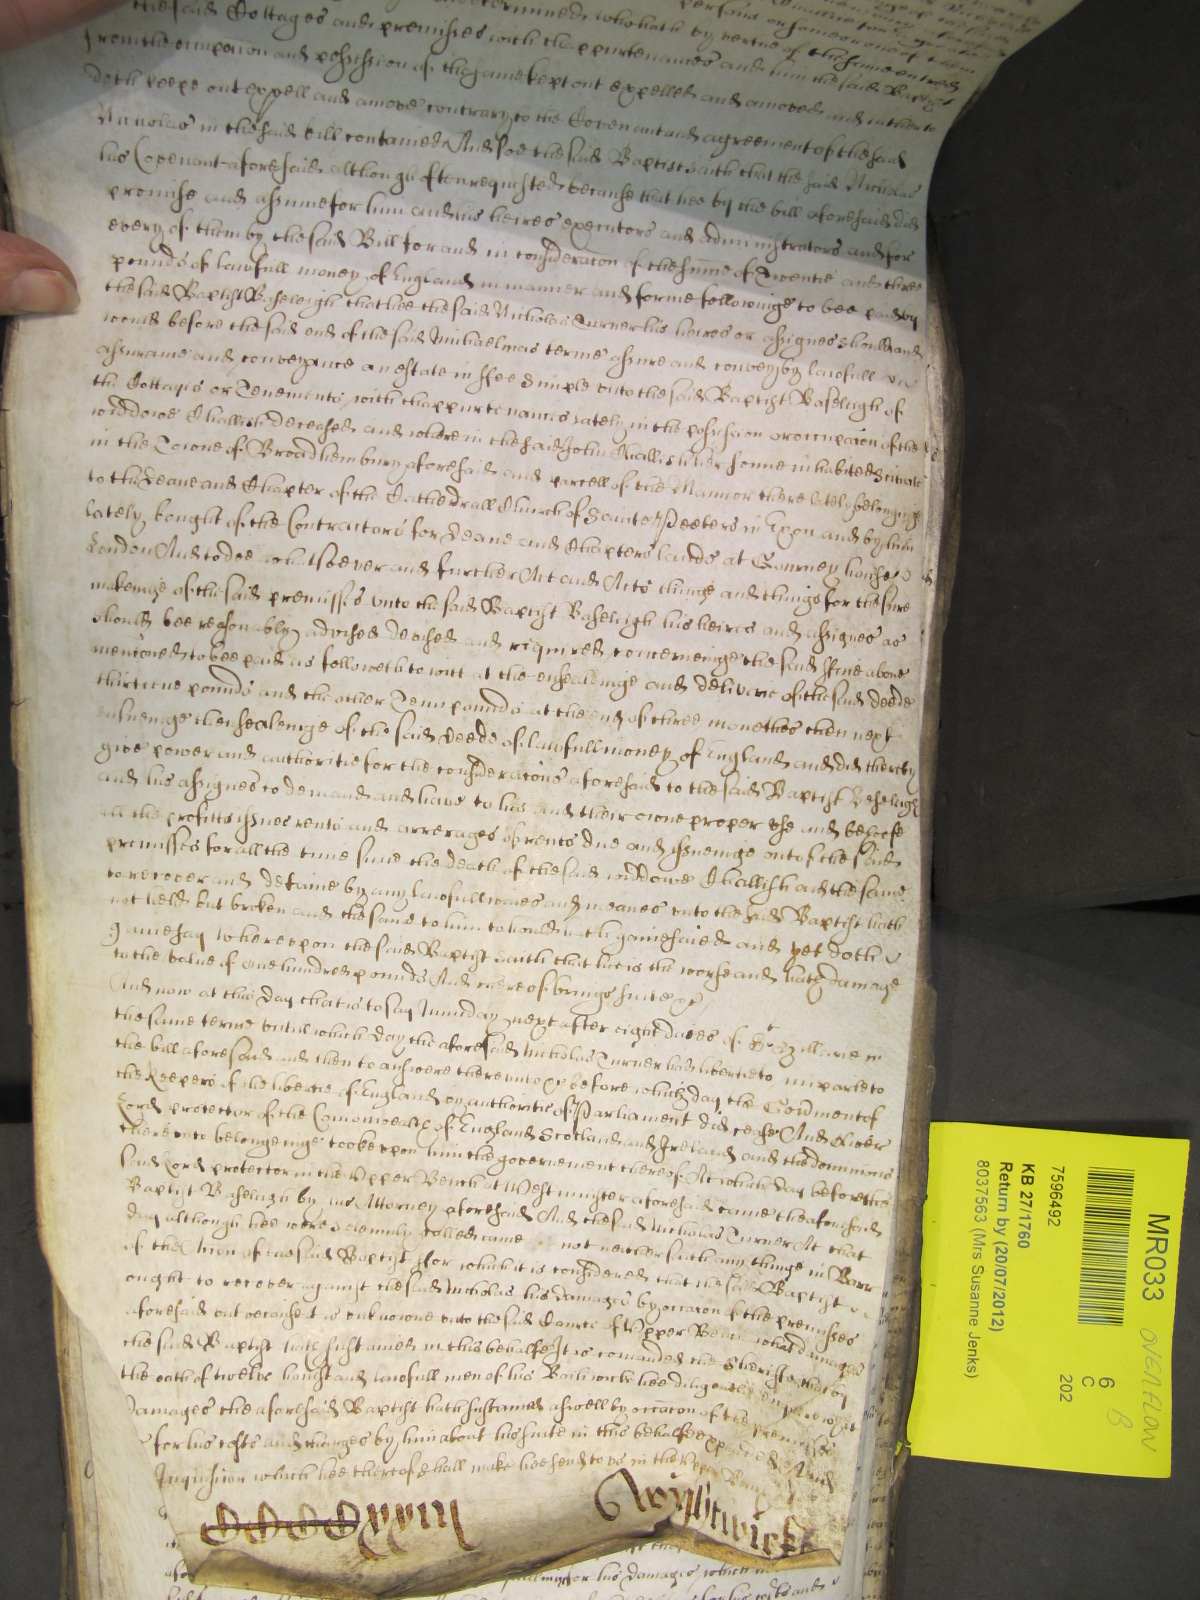 the said Cottages and premisses with thappurtenances and him the said Baptist
from the occupacion and possession of the same kept out expelled and amoved and as hitherto
doth keepe out expell and amove contrary to the Covenant and agreement of the said
Nicholas in the said bill contained And soe the said Baptist saith that the said Nicholas
his Covenant aforesaid although often requested because that hee by the bill aforesaid did
promise and assume for him and his heires executors and administrators and for
every of them by the said Bill for and in consideracon of the summe of Twentie and three
pounds of lawfull money of England in manner and forme followinge to bee paid by
the said Baptist Baseleigh that hee the said Nicholas Turner his heires or assignes should and
would before the said end of the said Michaelmas terme assure and convey by lawfull
assurance and conveyance an estate in Fee Simple unto the said Baptist Baseleigh of
the Cottages or Tenements with thappurtenances lately in the possession or occupacion of the
widdowe Challish deceased and wherein the said John Challish her sonne inhabited scituate
in the Towne of Broadhembury aforesaid and parcell of the Mannor there lately belonging
to the Deane and Chapter of the Cathedrall Church of Sainte Peeters in Exon and by him
lately bought of the Contractors for Deane and Chapters lands at Gourney house
London And to doe whatsoever and further Act and Acts thinge and things for the sure
makeinge of the said premisses unto the said Baptist Baseleigh his heires and assignes as
should bee reasonably advised devised and required concerneinge the said Fine above
mencioned to bee paid as followeth to witt at the ensealeinge and deliverie of the said deede
thirteene pounds and the other Tenn pounds at the end of three monethes then next
ensueinge thensealeinge of the said deede of lawfull money of England and did thereby
give power and authoritie for the consideracons aforesaid to the said Baptist Baseleigh
and his assignes to demand and have to his and their owne proper use and behoofe
all the profitts issues rents and arrerages of rents due and issueinge out of the said
premisses for all the time since the death of the said widdowe Challish and the same
to recover and detaine by any lawfull waies and meanes unto the said Baptist hath
not held but broken and the same to him to hould hath gainesaied and yet doth
gainesay whereupon the said Baptist saith that hee is the worse and hath damage
to the value of one hundred pounds And thereof brings suite &c
And now at this day that is to say munday next after eight daies of St Hillarie in
the same terme untill which day the aforesaid Nicholas Turner had libertie to imparle to
the bill aforesaid and then to answere thereunto &c before which day the Goverment of
the Keepers of the libertie of England by authoritie of Parliament did cease And Oliver
Lord protector of the Comonwealth of England Scotland and Ireland and the dominions
thereunto belongeinge tooke upon him the governement thereof At which day before the
said Lord protector in the Upper Bench at Westminster aforesaid came the aforesaid
Baptist Baseleigh by his Attorney aforesaid And the said Nicholas Turner At that
day although hee were solemnly called came not neither saith any thinge in Barr
of the Accion of the said Baptist For which it is considered that the said Baptist
ought to recover against the said Nicholas his damages by occacon of the premisses
aforesaid but because it is unknowne unto the said Court of Upper Bench what damages
the said Baptist hath sustained in this behalfe It is comanded the Sheriffe that by
the oath of twelve honest and lawfull men of his Bailiwicke hee diligently enquire what
damages the aforesaid Baptist hath sustained aswell by occacon of the premisses
as for his costs and charges by him about his suite in this behalfe expended And
Inquisicon which hee thereof shall make hee send to us in the Upper Bench
CCCCxxiii Wightwick
for his damages which
MR033
OVERFLOW
B
6
C
202
7596492
KB 27/1760
Return by (20/07/2012)
8037563 (Mrs Susanne Jenks)